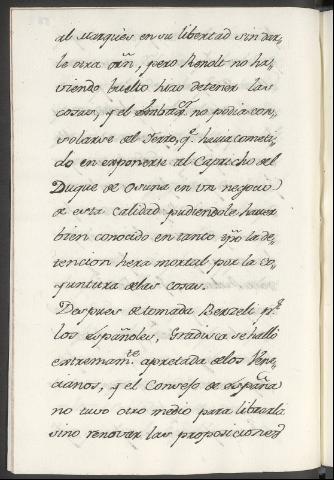 al Marques en su libertad sin dar=
le otra orñ, pero Rendt no ha=
viendo buelto hizo detener las
cosas, y el Embaxʳ no podia con=
solarse del Yerro, q.ᵉ havia cometi=
do en exponerse al Capricho del
Duque de Osuna en vn negocio
de esta calidad pudiendole haver
bien conocido en tanto tpõ la de=
tencion hera mortal por la co=
juntura delas cosas.
Despues de tomada Berzeli p.ʳ
los Españoles, Gradisca se halló
extremam.ᵗᵉ apretada delos Vene=
cianos, y el Consejo de España
no tuvo otro medio para librarla
sino renovar las proposiciones